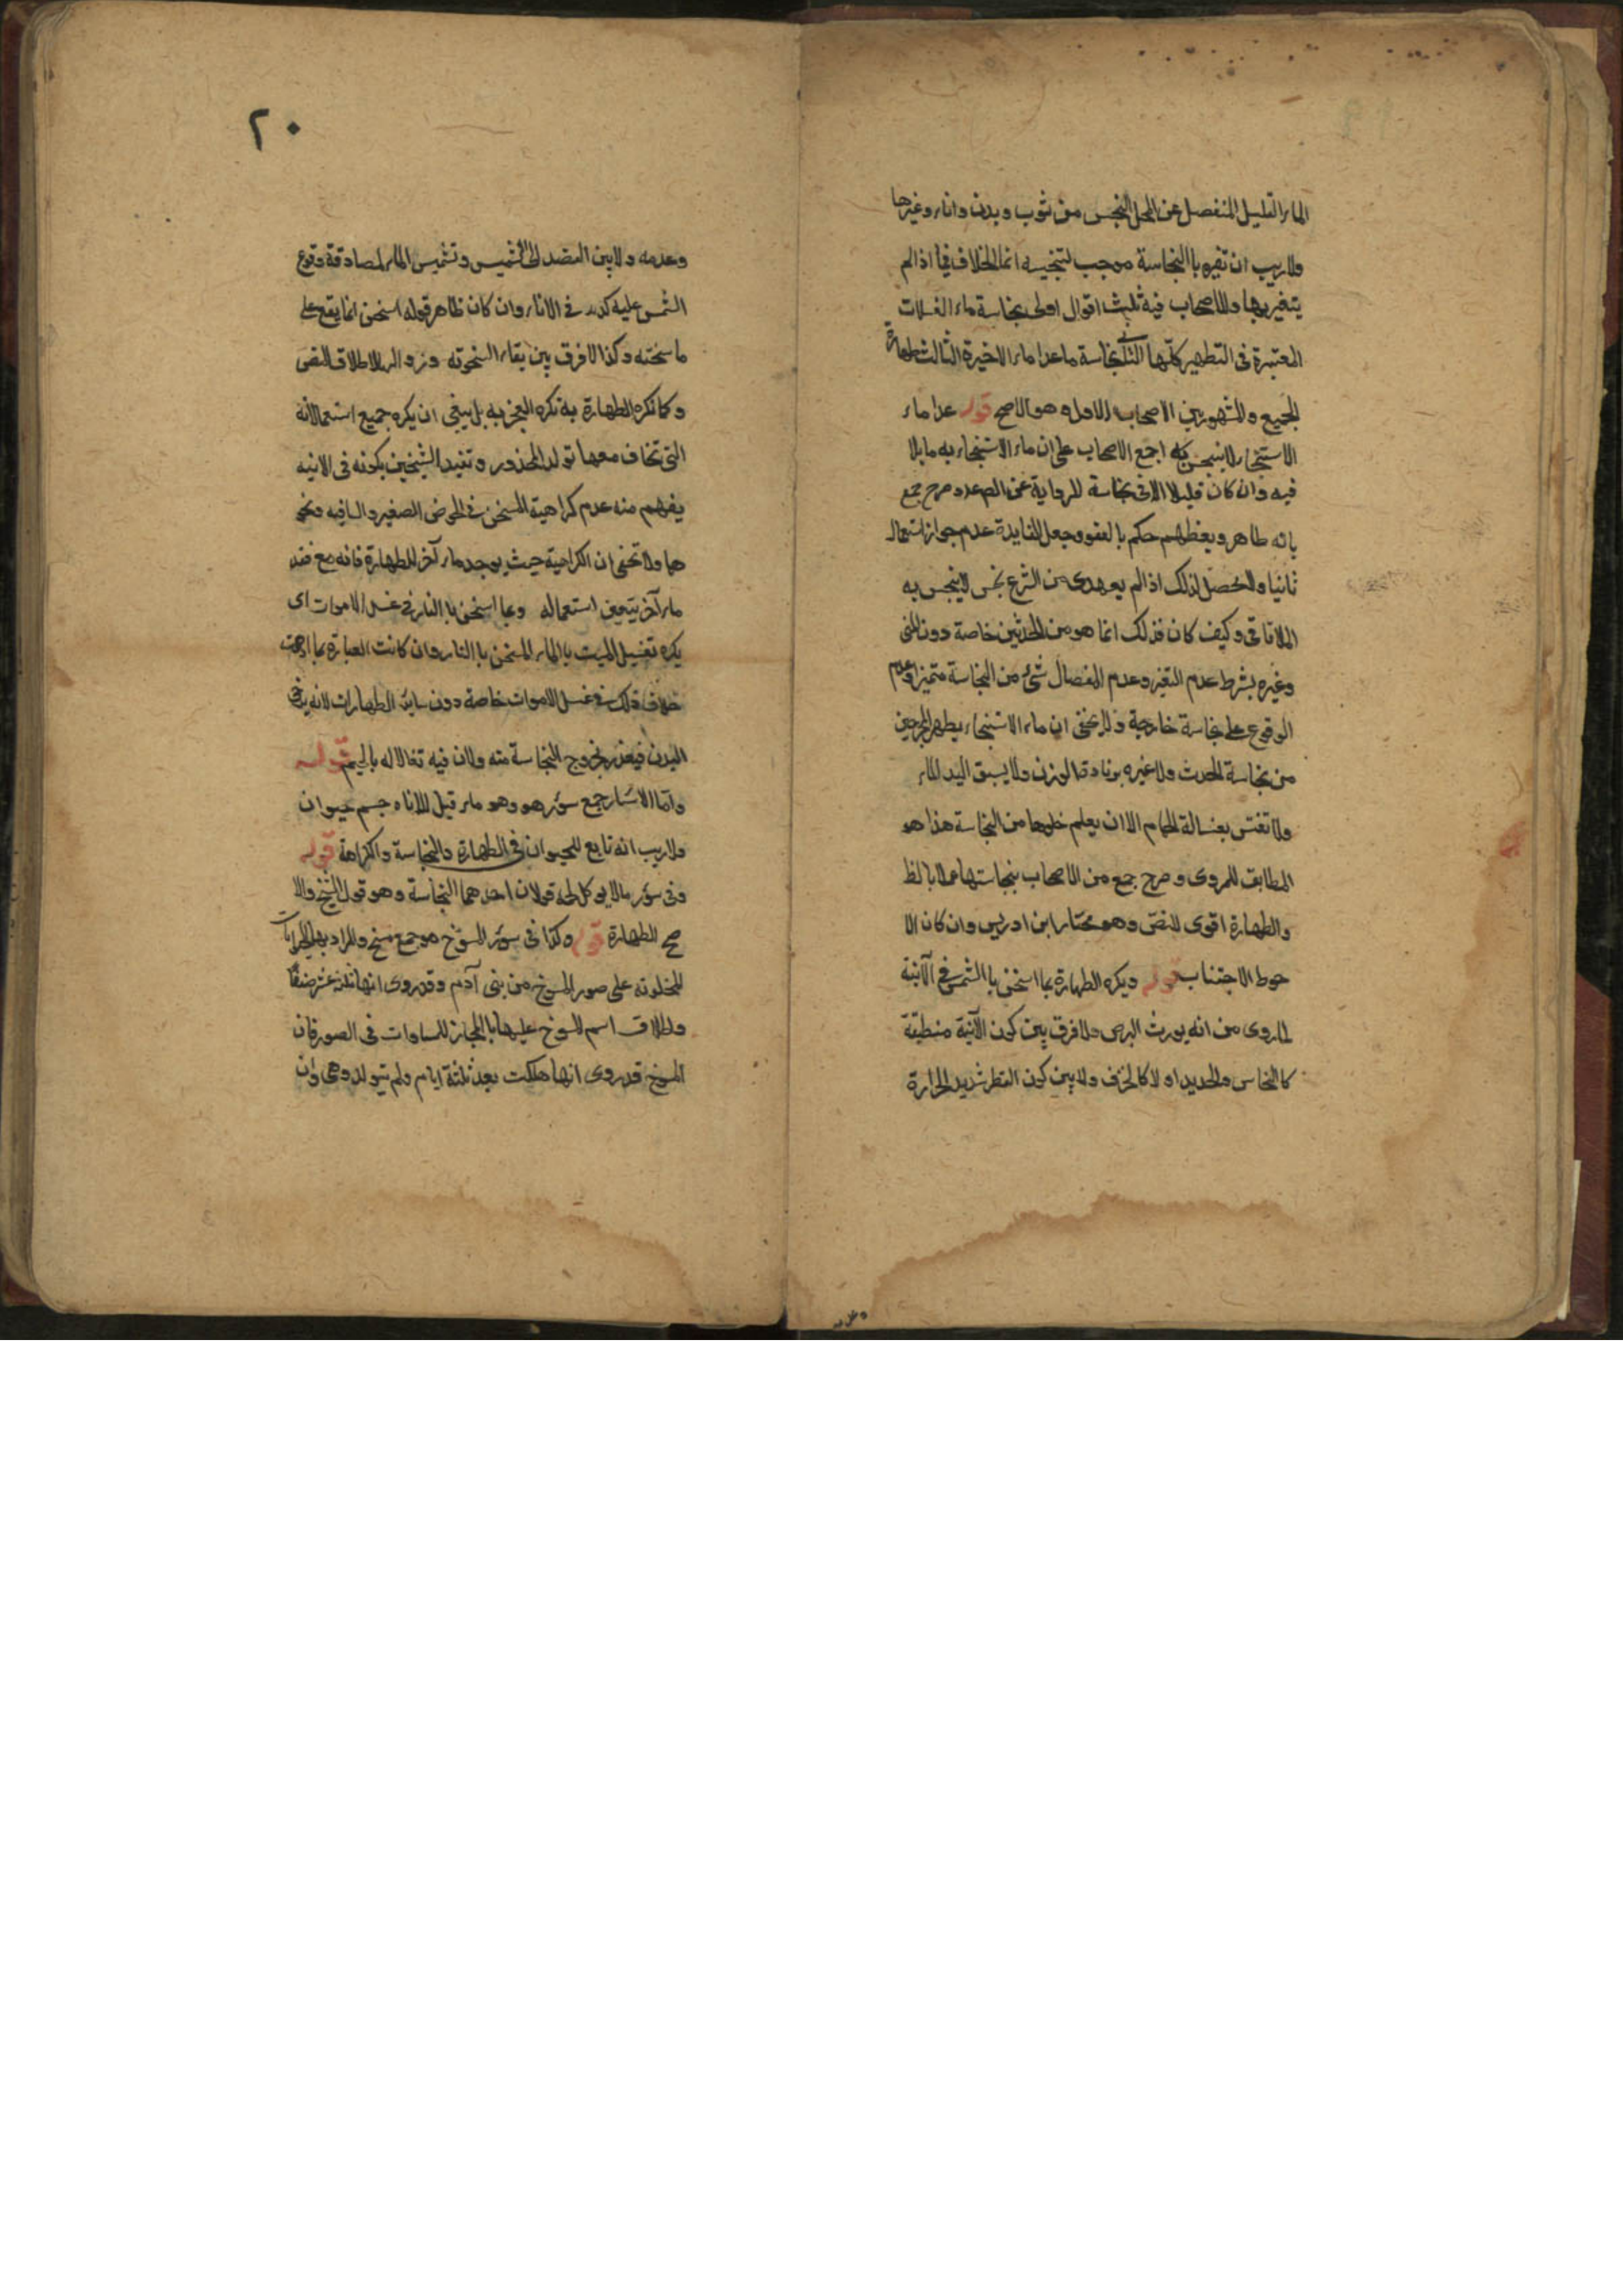 الماء القليل المنفصل عن المحل النجس من ثوب وبدن واناء وغيرها
ولا ريب ان تغيره با النجاسة موجب لتنجيسه انما الخلاف فيما اذا لم
يتغير بها وللاصحاب فيه ثلث اقوال اولى نجاسة ماء الغسلات
المعتبرة فى التطهير كلها الثانى نجاسة ما عدا ماء الاخيرة الثالث طهارة
الجميع والمشهور بين الاصحاب الاول وهو الاصح قوله عدا ماء
الاستنجاء لا ينجس كله اجمع الاصحاب على ان ماء الاستنجاء به ما بلا
فيه وان كان قليلا لاقى نجاسة للرواية عن الص ع وصرح جمع
بانه طاهر وبعظهم حكم بالعفو وجعل الفايدة عدم جواز استعماله
ثانيا والمحصل لذلك اذ لم يعهد من الشرع نجس لا ينجس به
الملاقاقى وكيف كان فذلك انما هو من الحدثين خاصة دون المنى
وغيره بشرط عدم التغير وعدم انفصال شئ من النجاسة متميزا وعدم
الوقوع على نجاسة خارجة ولا يخفى ان ماء الاستنجاء يطهر المخرجين
من نجاسة الحدث ولا غيره بزيادة الوزن ولا يسبق اليد الماء
ولا تغتسل بغسالة الحمام الا ان يعلم خلوها من النجاسة هذا هو
المطابق للمروى وصرح جمع من الاصحاب بنجاستها عملا بالظ
والطهارة اقوى للنص وهو مختار ابن ادريس وان كان الا
حوط الاجتناب قوله ويكره الطهارة بما اسخن با الشمس فى الآنية
لما روى من انه يورث البرص ولا فرق بين كون الآنية منطبقة
كالنحاس والحديد او لا كالخزف ولا بين كون القطر شديد الحرارة
وعدمه
٢٠
وعدمه ولا بين القصد الى التشميس وتشميس الماء لمصادقة وقوع
الشمس عليه كذلك فى الاناء وان كان ظاهر قوله اسخن انما يقع على
ما سخنته وكذا لا فرق بين بقاء السخونة وزواله لاطلاق النص
وكما تكره الطهارة به تكره العجز به بل ينبغى ان يكره جميع استعمالاته
التى تخاف معها تولد المحذور وتقييد الشيخين بكونه فى الانيه
يفهم منه عدم كراهية المسخن فى الحوض الصغير والساقيه ونحو
هما ولا تخفى ان الكراهية حيث يوجد ماء آخر للطهارة فانه مع فقد
ماء آخر يتعين استعماله وبما اسخن با النار فى غسل الاموات اى
يكره تغسيل الميت با الماء المسخن با النار وان كانت العبارة بما اوهمت
خلاف ذلك فى غسل الاموات خاصة دون سائر الطهارات لانه يرخى
البدن فيغذر بخروج النجاسة منه ولان فيه تفالا له بالحيم قوله
واما الاسئار جمع سؤر هو وهو ماء قليل للاناه جسم حيوان
ولا ريب انه تابع للحيوان فى الطهارة والنجاسة والكراهة قوله
وفى سؤر ما لا يوكل لحه قولان احدهما النجاسة وهو قول الشيخ والا
صح الطهارة قوله وكذا فى سؤر المسوخ هو جمع مسخ والمراد بها الحيوانات
المخلوقة على صور المسوخ من بنى آدم وقد روى انها ثلثة عشر صنفا
واطلاق اسم المسوخ عليها بالمجاز للساوات فى الصور فان
المسوخ قد روى انها هلكت بعد ثلثة ايام ولم تتولد وهى وان